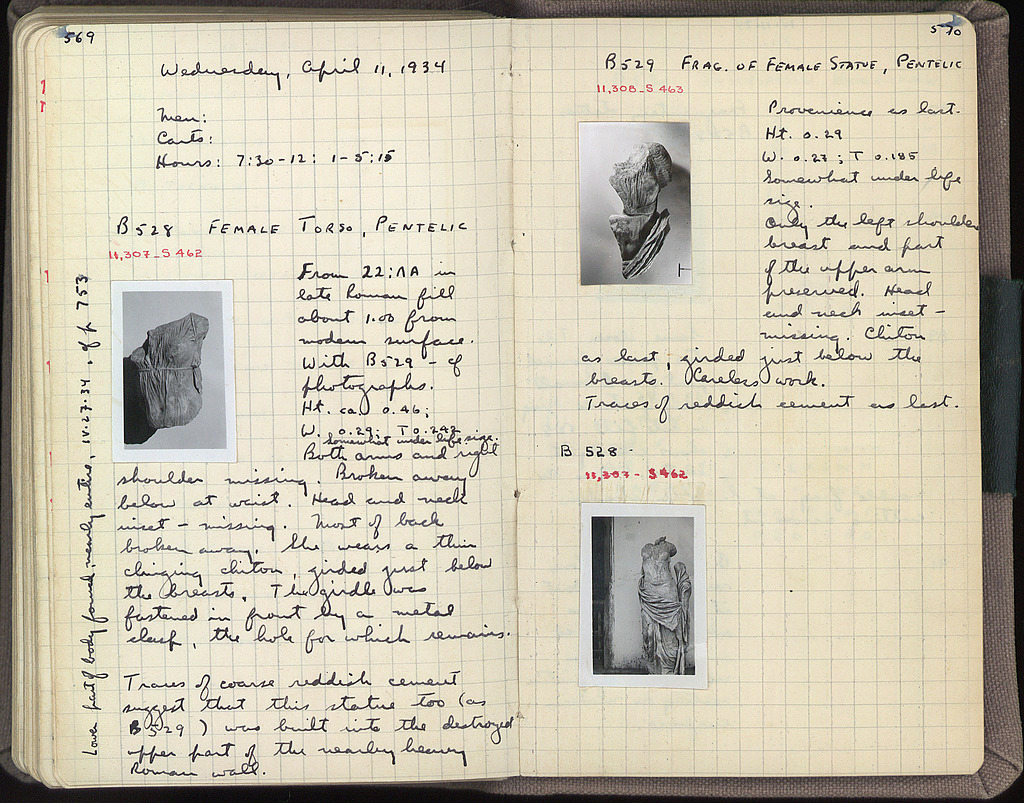 569
Wednesday, April 11, 1934
Men:
Carts:
Hours: 7:30-12: 1-5:15
B528 FEMALE TORSO, PENTELIC
11,307-S 462
From 22:ΛA in
late Roman fill
about 1.00 from
modern surface.
With B529 - cf
photographs.
Ht. ca. 0.46;
W. 0.29; T 0.242
Somewhat under life size.
Both arms and right
shoulder missing. Broken away
below at waist. Head and neck
inset - missing. Most of back
broken away. She wears a thin
clinging chiton, girded just below
the breasts. The girdle was
fastened in front by a metal
clasp, the hole for which remains.
Traces of coarse reddish cement
suggest that this statue too (as
B529) was built into the destroyed
upper part of the nearby heavy
Roman wall.
Lower part of body found, nearly entire, IV-27-34. cf p 753
570
B529 FRAG. OF FEMALE STATUE, PENTELIC
11,308-S 463
Provenience as last.
Ht. 0.29
W. 0.27; T 0.185
Somewhat under life
size.
Only the left shoulder
breast and part
of the upper arm
preserved. Head
and neck inset -
missing. Chiton
as last, girded just below the
breasts. Careless work.
Traces of reddish cement as last.
B 528 -
11,307 - S 462